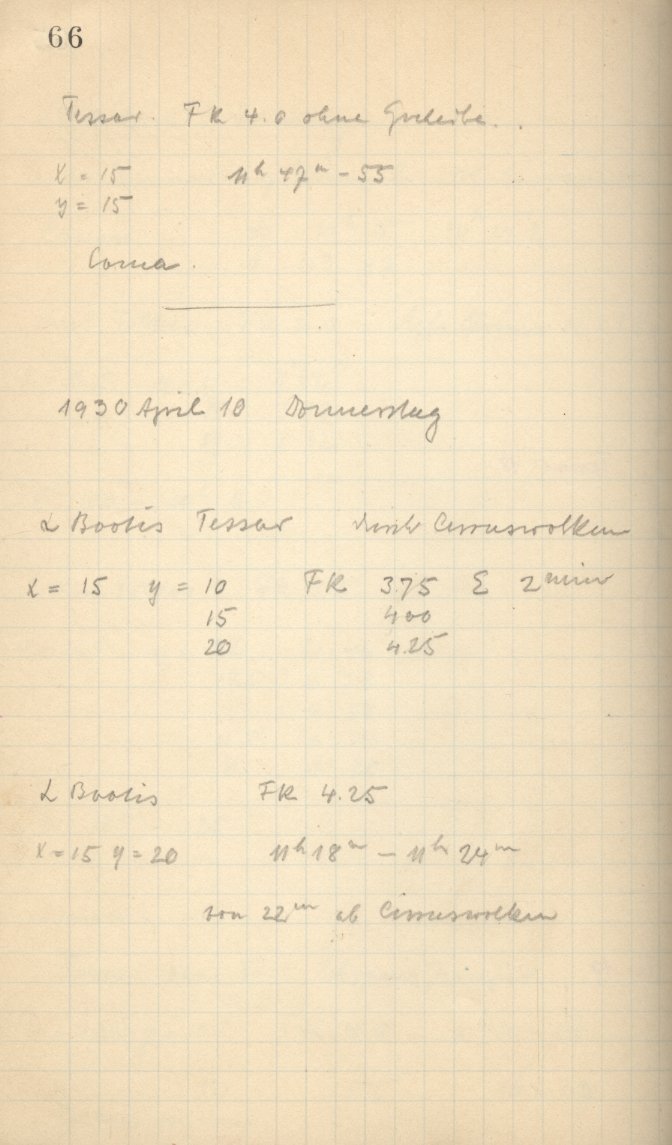 66
Tessar. FK 4.0 ohne Gscheibe.
x = 15 11h 47m - 55
y = 15
Coma.
1930 April 10 Donnerstag
α Bootis Tessar durch Cirruswolken
x = 15 y = 10 FK 3.75 Σ 2 min
15 4.00
20 4.25
α Bootis FK 4.25
x = 15 y = 20 11h 18m - 11h 24m
von 22m ab Cirruswolken